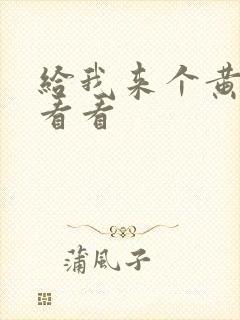 给我来个黄
看看
蒲风子